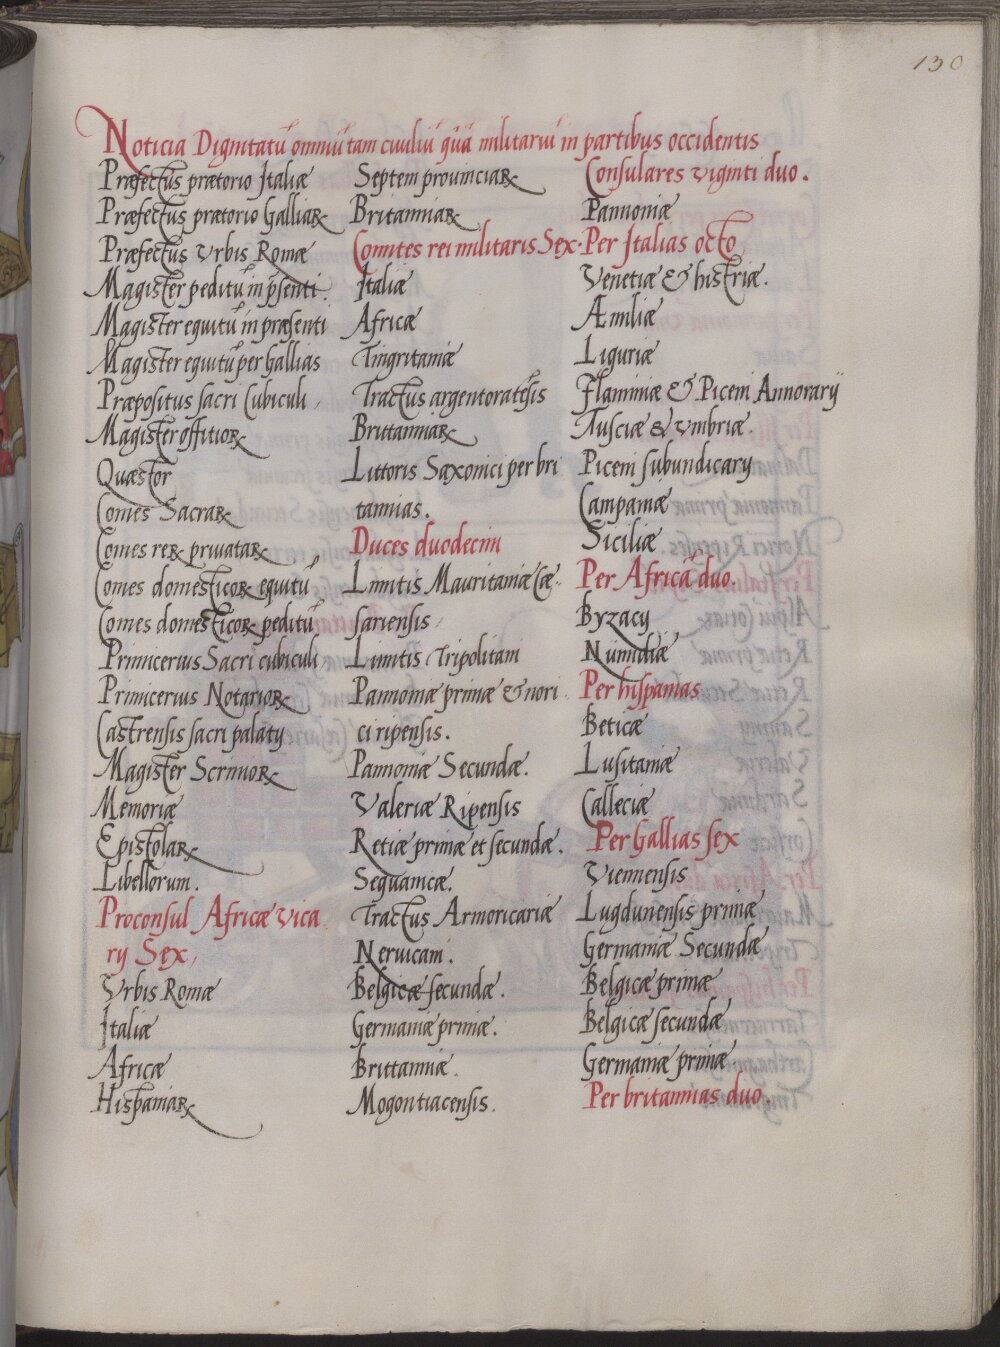 130
Noticia Dignitatū omniū tam ciuiliū quā militariū in partibus occidentis
Præfectus prætorio Italiæ
Præfectus prætorio Galliaꝝ
Præfectus Vrbis Romæ
Magister peditū in p̄senti.
Magister equitū in præsenti
Magister equitū per Gallias
Præpositus sacri Cubiculi,
Magister offitioꝝ
Quæstor
Comes Sacraꝝ
Comes reꝝ priuataꝝ
Comes domesticoꝝ equitū
Comes domesticoꝝ peditū
Primicerius Sacri cubiculi,
Primicerius Notarioꝝ
Castrensis sacri palatij
Magister Scrinioꝝ
Memoriæ
Epistolaꝝ
Libellorum.
Proconsul Africæ Vica
rij Sex,
Vrbis Romæ
Italiæ
Africæ
Hispaniaꝝ
Septem prouinciaꝝ
Britanniaꝝ
Comites rei militaris Sex.
Italiæ
Africæ
Tingritaniæ
Tractus argentoratēsis
Brittanniaꝝ
Littoris Saxonici per bri
tannias.
Duces duodecim
Limitis Mauritaniæ Cæ-
sariensis,
Limitis Tripolitani
Pannoniæ primæ & nori
ci ripensis.
Pannoniæ Secundæ.
Valeriæ Ripensis
Retiæ primæ et secundæ.
Sequanicæ.
Tractus Armoricariæ
Neruicani.
Belgicæ secundæ.
Germaniæ primæ.
Brittanniæ.
Mogontiacensis.
Consulares viginti duo.
Pannoniæ
Per Italias octo
Venetiæ & histriæ.
Æmiliæ
Liguriæ
Flaminiæ & Piceni Annorarij
Tusciæ & Vmbriæ.
Piceni suburdicarij
Campaniæ
Siciliæ
Per Africā duo.
Byzacij
Numidiæ
Per hispanias
Beticæ
Lusitaniæ
Calleciæ
Per Gallias sex
Viennensis
Lugdunensis primæ
Germaniæ Secundæ
Belgicæ primæ
Belgicæ secundæ
Germaniæ primæ
Per britannias duo.